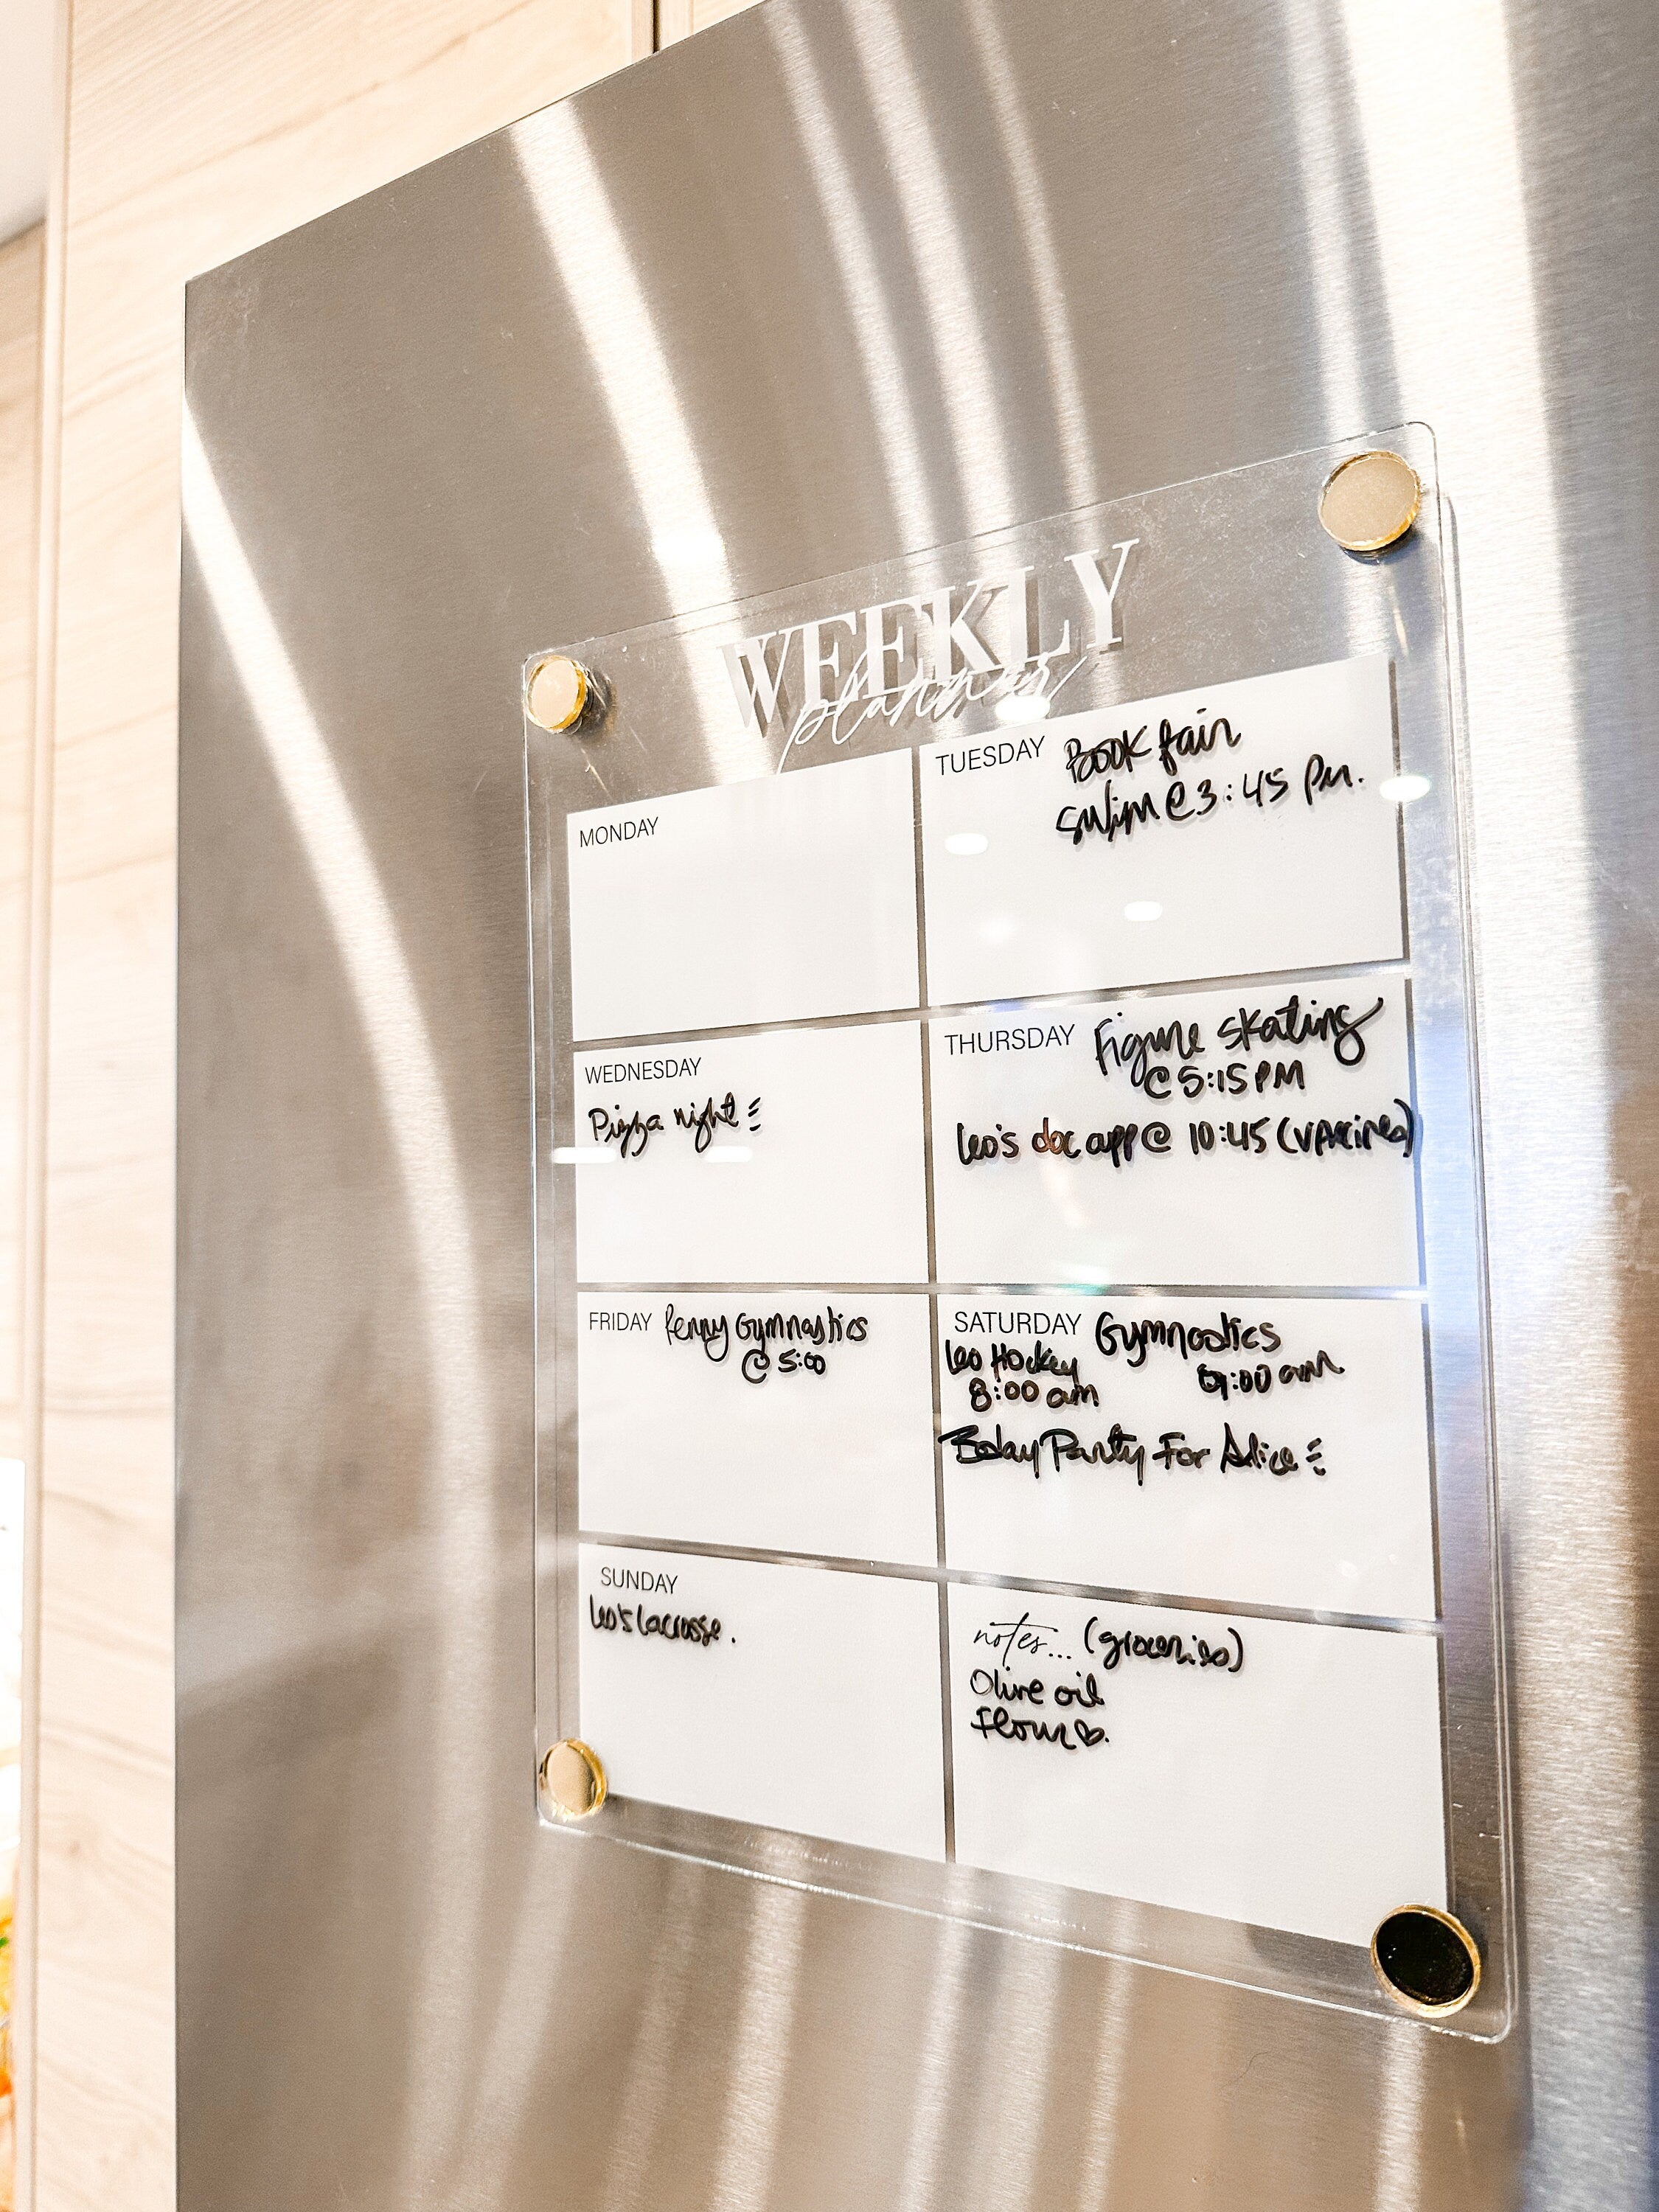 WEEKLY
planner
MONDAY
TUESDAY Book fair
Swim @ 3:45 Pm.
WEDNESDAY
Pizza night
THURSDAY Figure skating
@ 5:15 PM
Leo's doc app @ 10:45 (VAccines)
FRIDAY Penny Gymnastics
@ 5:00
SATURDAY Gymnastics
9:00 am
Leo Hockey
8:00 am
Bday Party For Alice
SUNDAY
Leo's lacrosse.
notes... (groceries)
Olive oil
Flour♡.